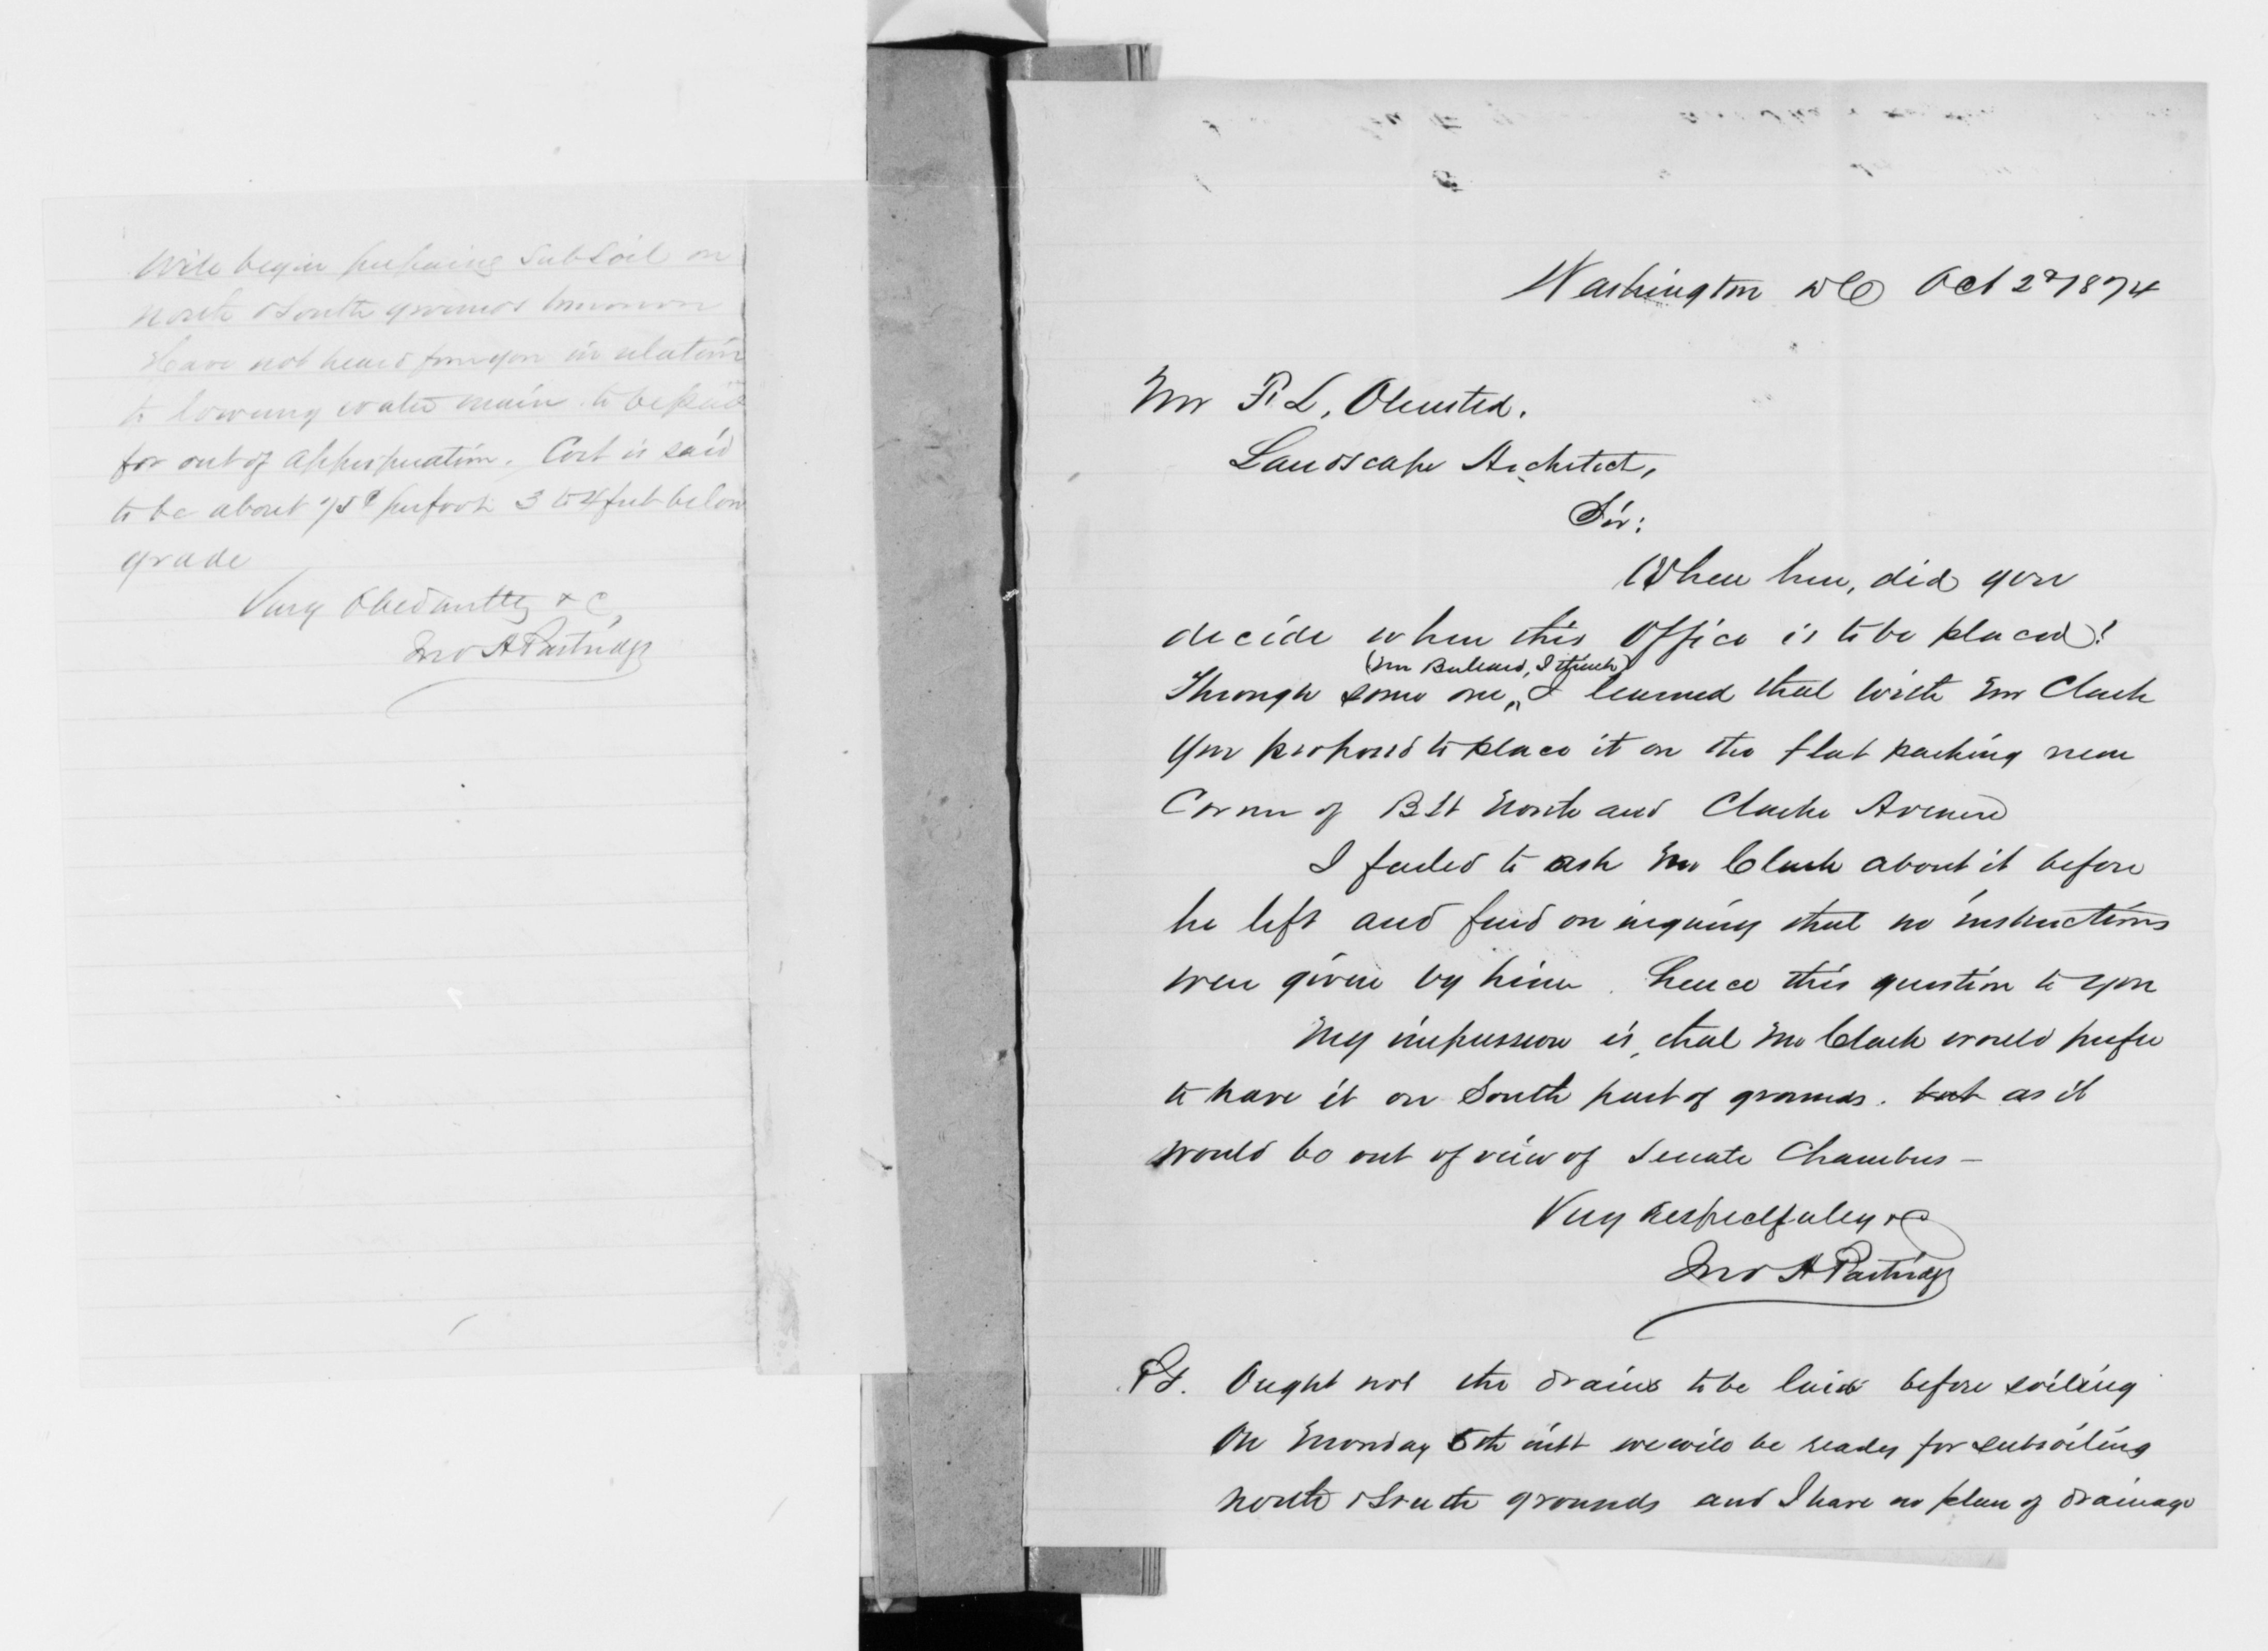 Will begin preparing Subsoil on
North & South grounds tomorrow
Have not heard from you in relation
to lowering water main to be paid
for out of appropriation. Cost is said
to be about 75¢ per foot 3 to 4 feet below
grade
Very Obediently &c,
Jno A Partridge
Washington DC Oct 2d 1874
Mr F. L. Olmsted.
Landscape Architect,
Sir:
When here, did you
decide where this Office is to be placed?
(Mr Bullard, I think)
Through some one, I learned that with Mr Clark
you proposed to place it on the flat parking near
Corner of B St North and Clarke Avenue
I failed to ask Mr Clark about it before
he left and find on inquiry that no instructions
were given by him. hence this question to you
My impression is, that Mr Clark would prefer
to have it on South part of grounds. but as it
would be out of view of Senate Chambers –
Very Respectfully &c
Jno A Partridge
P.S. Ought not the drains to be laid before soiling
On Monday 5th inst we will be ready for subsoiling
north & South grounds and I have no plan of drainage